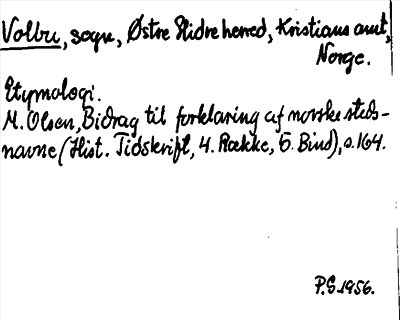 Volbu, sogn, Østre Slidre herred, Kristians amt,
Norge.
Etymologi.
M. Olsen, Bidrag til forklaring af norske steds-
navne (Hist. Tidskrift, 4. Række, 5. Bind), s. 164.
P.S. 1956.